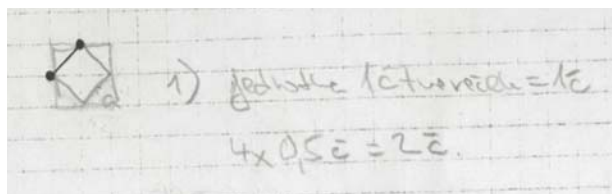 1) jednotka 1čtvereček = 1č
4x 0,5č = 2č.